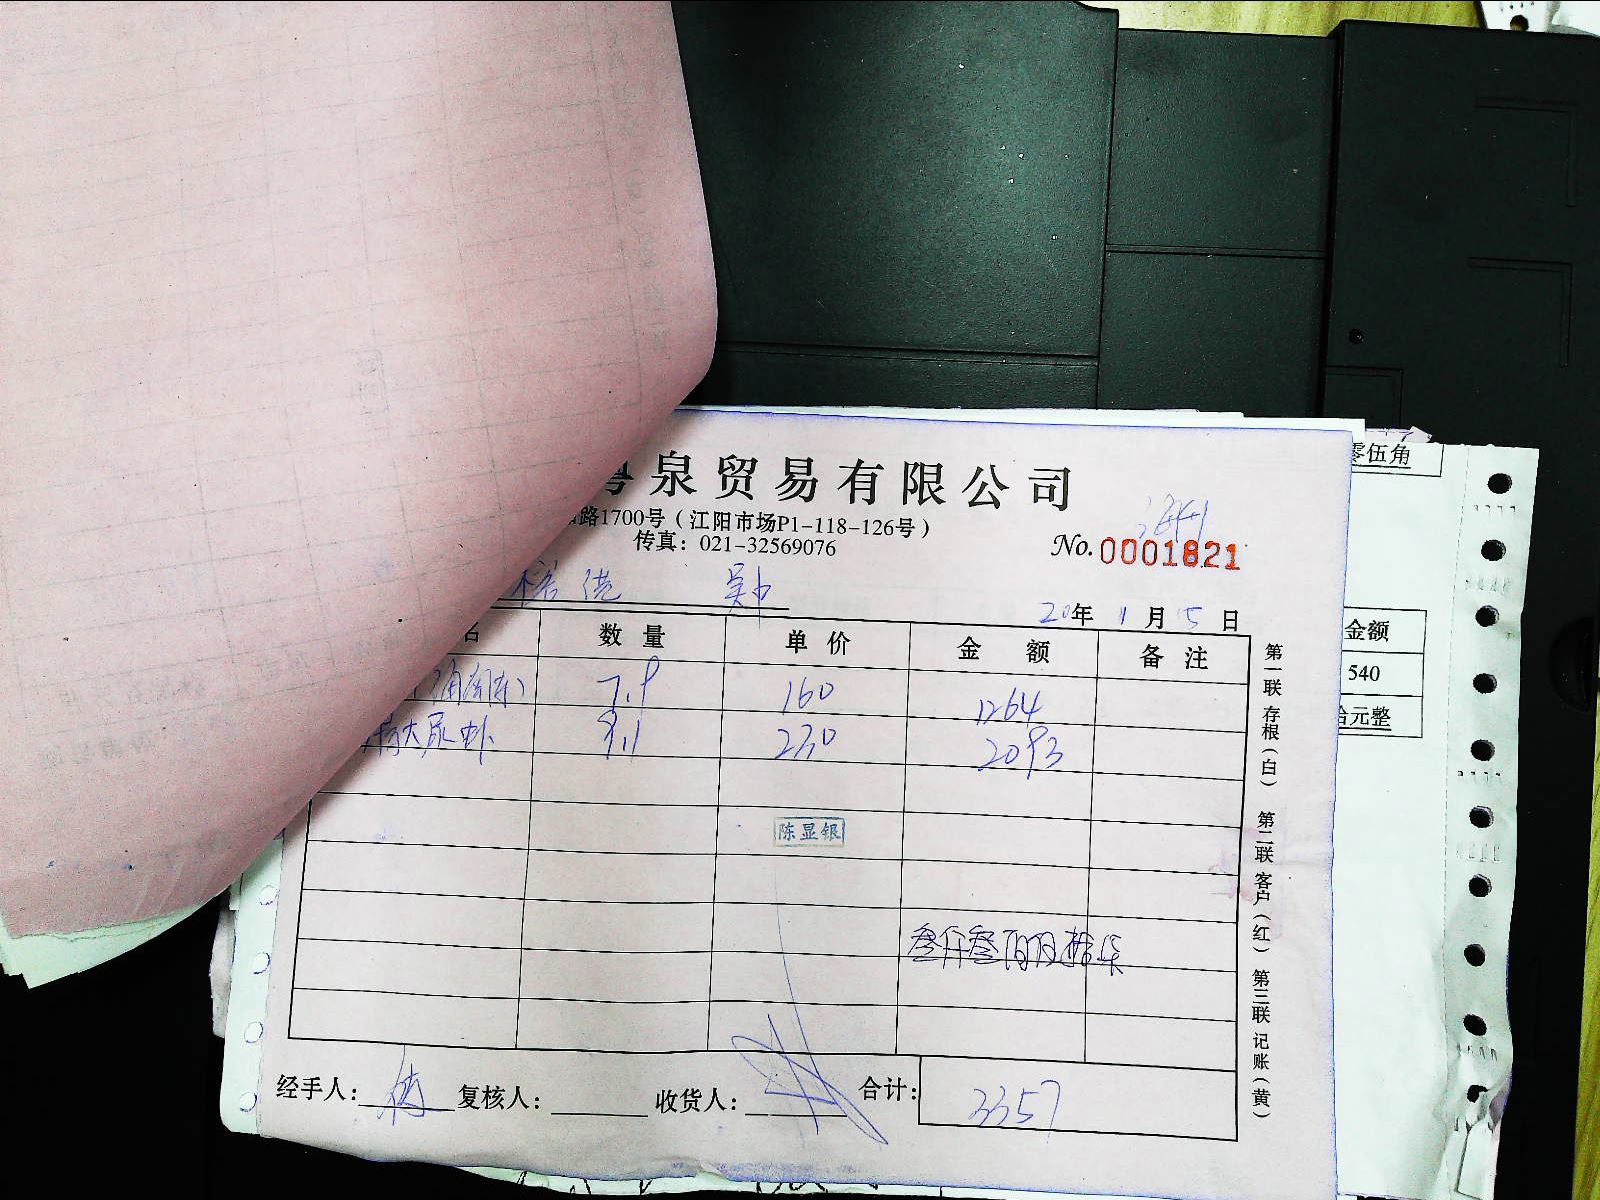 粤泉贸易有限公司
路1700号（江阳市场P1-118-126号）
传真：021-32569076
No. 0001821
20年 1月 15日
名 数量 单价 金额 备注
7.9 160 1264
特大尿虾 9.1 230 2093
陈显银
叁仟叁佰伍拾柒
经手人： 复核人： 收货人： 合计： 3357
第一联 存根（白） 第二联 客户（红） 第三联 记账（黄）
零伍角
金额
540
拾元整